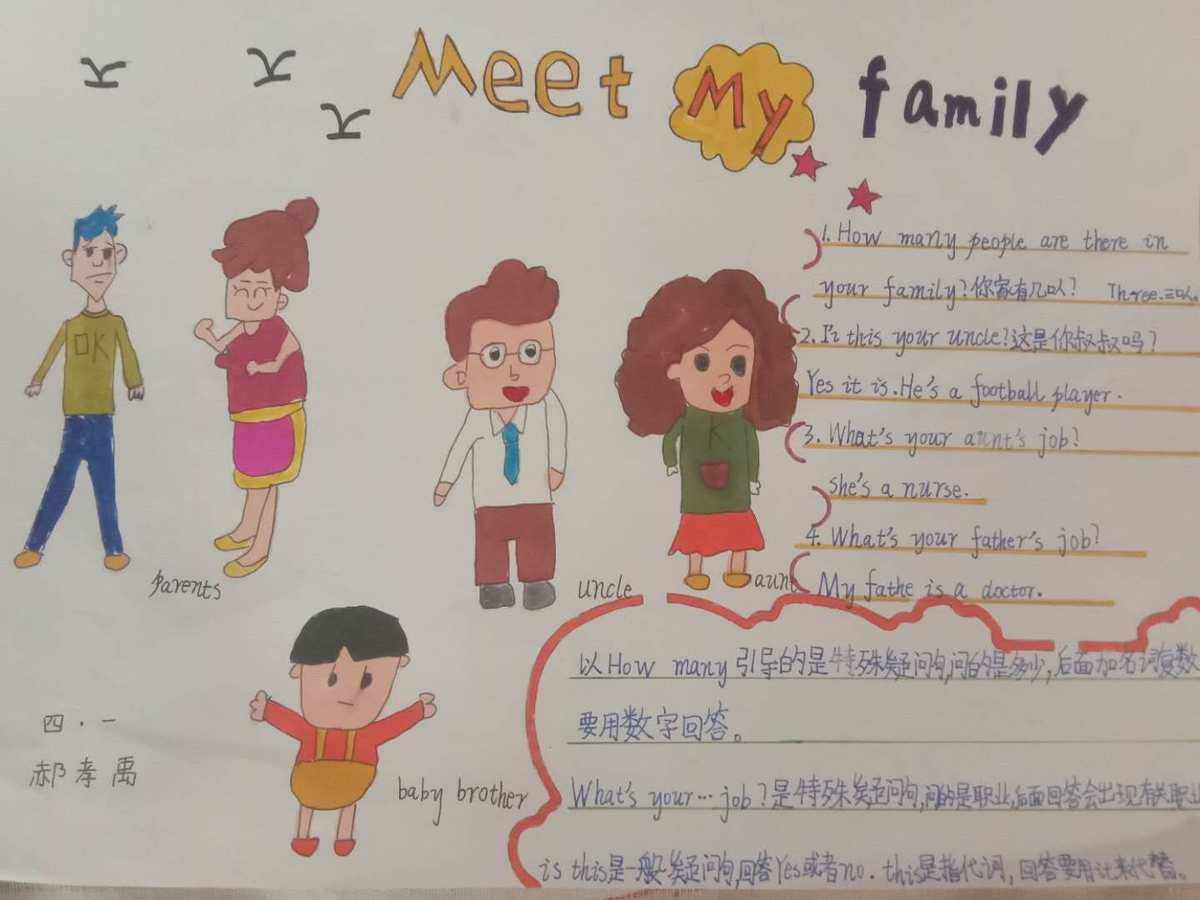 Meet My family
1. How many people are there in
your family? 你家有几口人? Three. 三口人.
2. Is this your uncle? 这是你叔叔吗?
Yes it is. He's a football player.
3. What's your aunt's job?
she's a nurse.
4. What's your father's job?
My fathe is a doctor.
OK
K
parents
uncle
aunt
baby brother
四·一
郝孝禹
以How many引导的是特殊疑问句,问的是多少,后面加名词复数
要用数字回答。
What's your…job?是特殊疑问句,问的是职业,后面回答会出现有关职业
is this是一般疑问句,回答Yes或者no. this是指代词,回答要用it来代替。